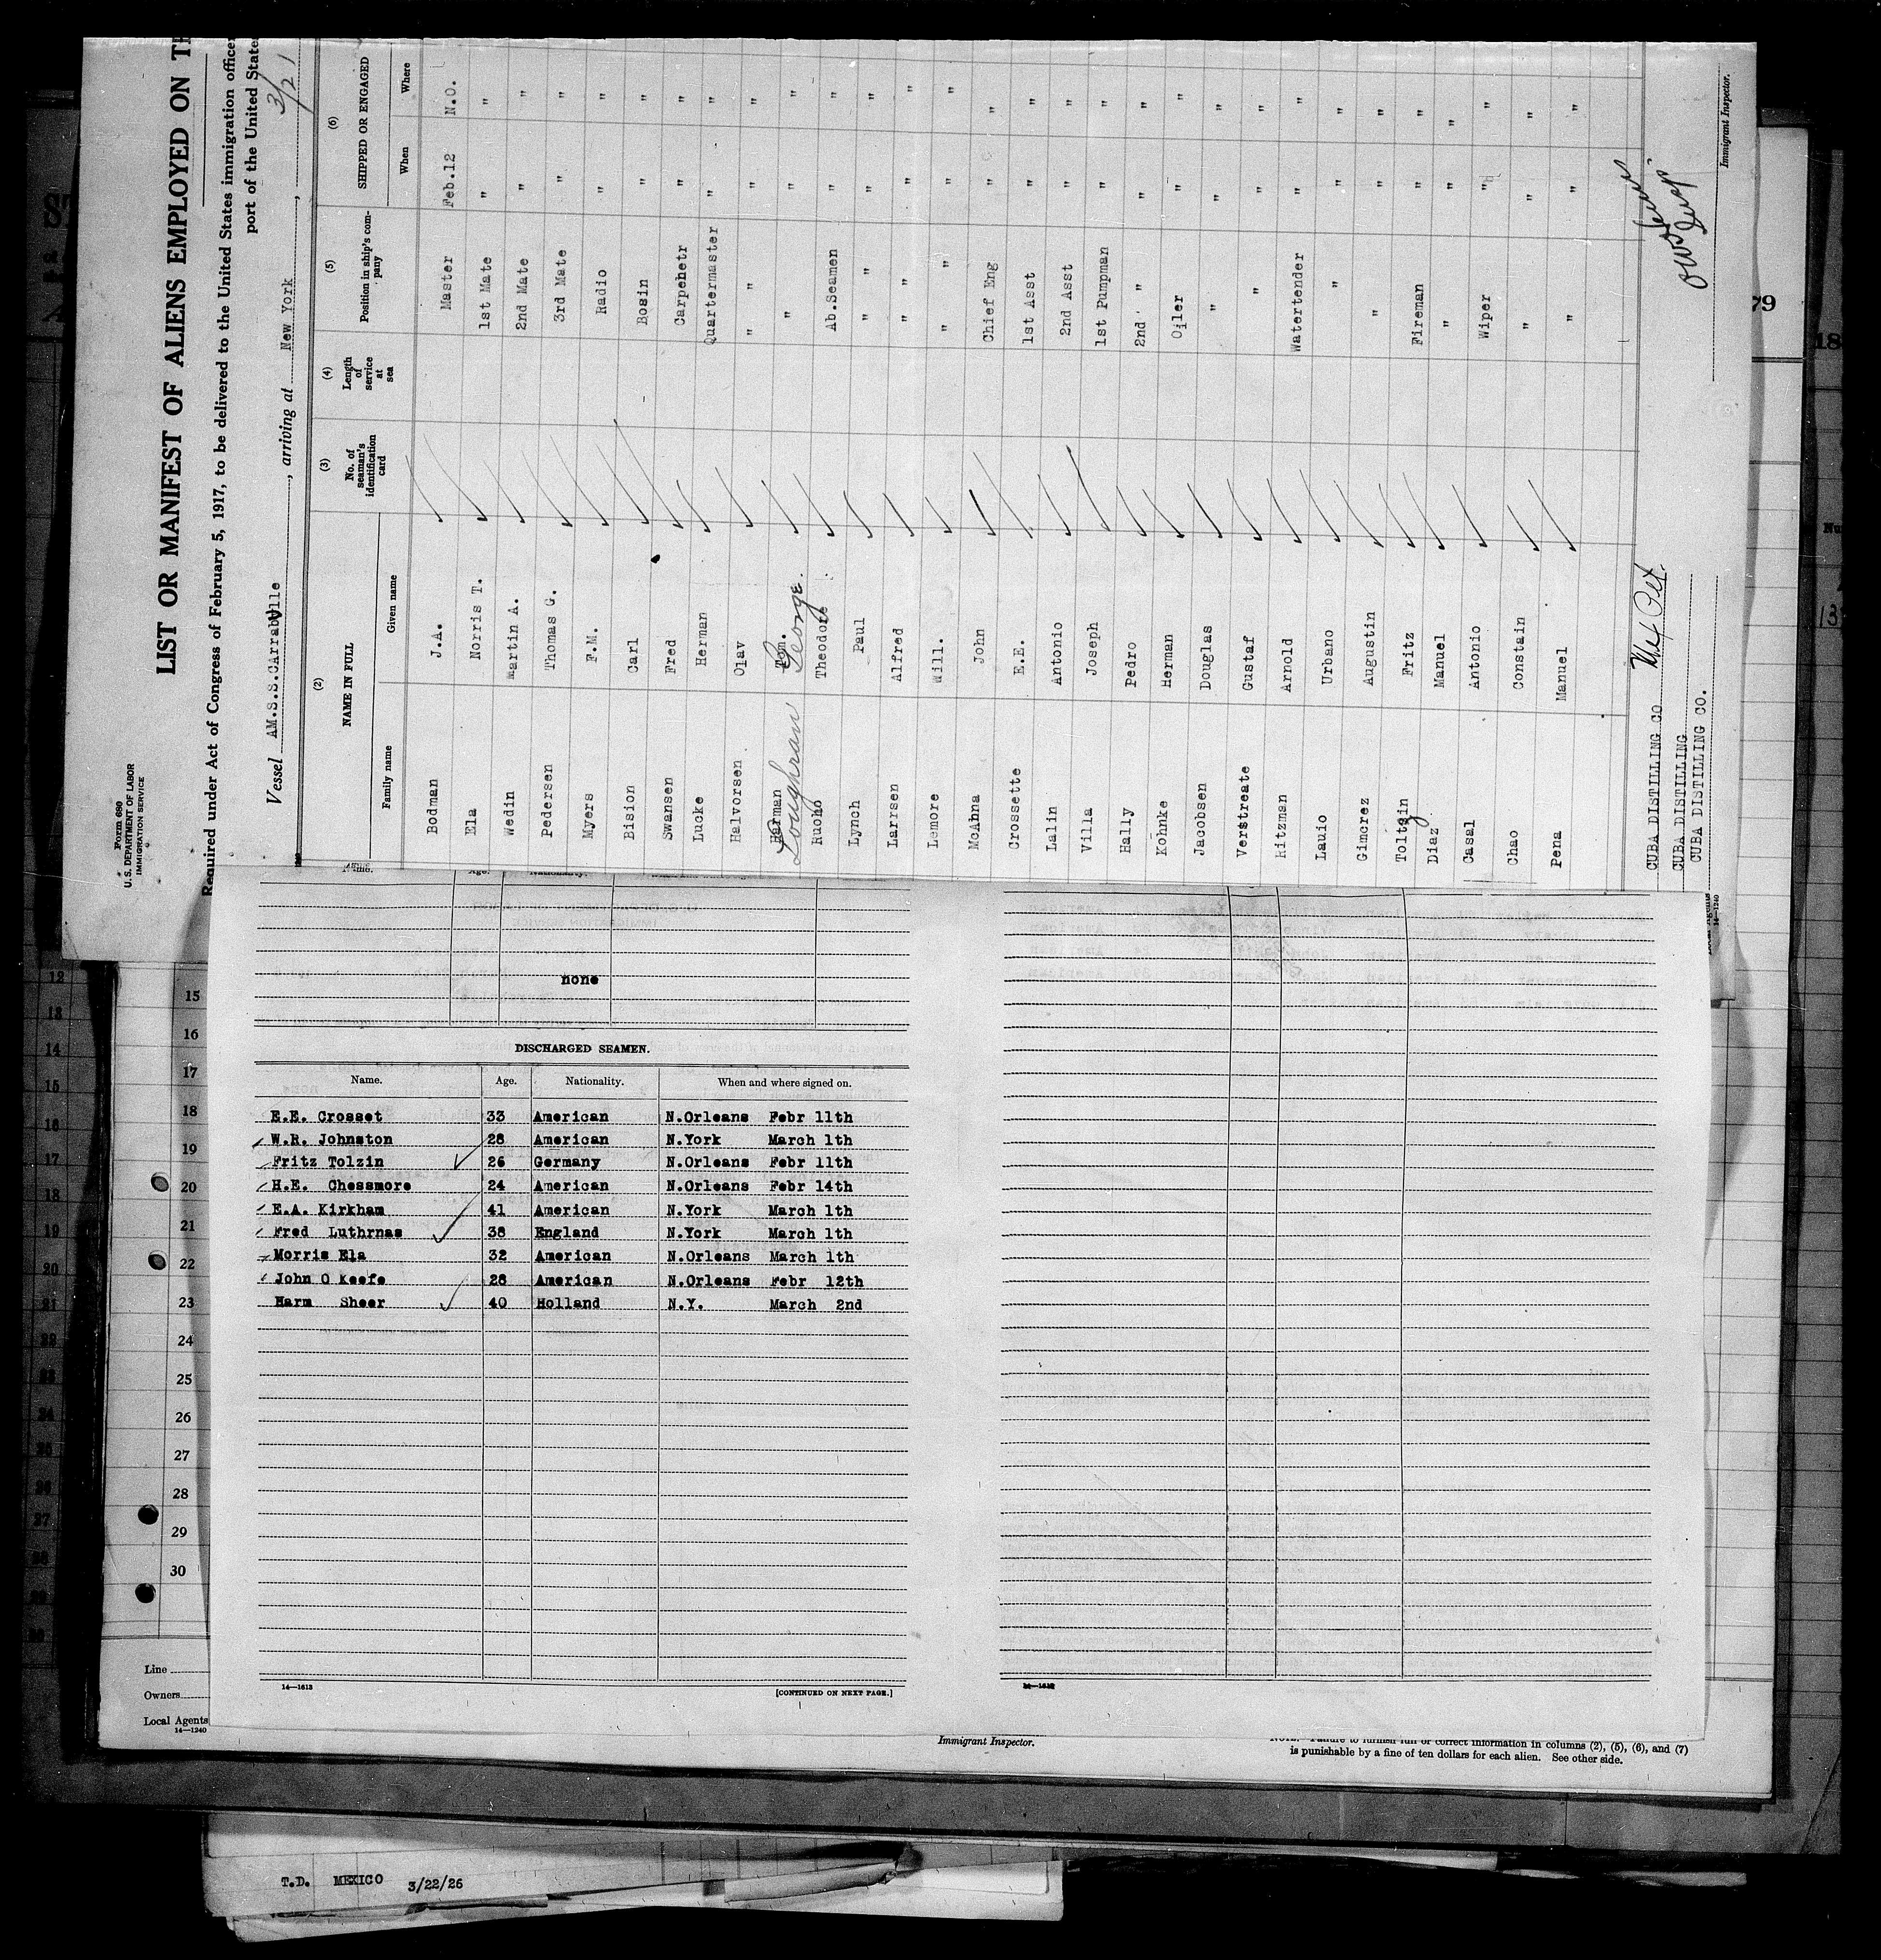 Form 680
U.S. DEPARTMENT OF LABOR
IMMIGRATION SERVICE
LIST OR MANIFEST OF ALIENS EMPLOYED ON
Required under Act of Congress of February 5, 1917, to be delivered to the United States immigration officer
port of the United States
Vessel AM.S.S.Carrabulle, arriving at New York, 3/21
(2) (3) (4) (5) (6)
NAME IN FULL No. of seaman's identification card Length of service at sea Position in ship's company SHIPPED OR ENGAGED
Family name Given name When Where
Bodman J.A. Master Feb.12 N.O.
Ela Norris T. 1st Mate " "
Wedin Martin A. 2nd Mate " "
Pedersen Thomas G. 3rd Mate " "
Myers F.M. Radio " "
Bision Carl Bosin " "
Swansen Fred Carpehetr " "
Lucke Herman Quartermaster " "
Halvorsen Olav " " "
Harman Tom. " " "
Loughran George.
Ruoho Theodore Ab.Seamen " "
Lynch Paul " " " "
Larrsen Alfred " " " "
Lemore Will. " " " "
McAhna John Chief Eng " "
Crossette E.E. 1st Asst " "
Lalin Antonio 2nd Asst " "
Villa Joseph 1st Pumpman " "
Hally Pedro 2nd " " "
Kohnke Herman Oiler " "
Jacobsen Douglas " " "
Verstreate Gustaf " " "
Ritzman Arnold Watertender " "
Lauio Urbano " " "
Gimcrez Augustin " " "
Toltzin Fritz Fireman " "
Diaz Manuel " " "
Casal Antonio Wiper " "
Chao Constain " " "
Pena Manuel " " "
CUBA DISTILLING CO
CUBA DISTILLING
CUBA DISTILLING CO.
Immigrant Inspector.
14—1240
79
none
DISCHARGED SEAMEN.
Name. Age. Nationality. When and where signed on.
E.E. Crosset 33 American N.Orleans Febr 11th
W.R. Johnston 28 American N.York March 1th
Fritz Tolzin 26 Germany N.Orleans Febr 11th
H.E. Chessmore 24 American N.Orleans Febr 14th
E.A. Kirkham 41 American N.York March 1th
Fred Luthrnas 38 England N.York March 1th
Morris Ela 32 American N.Orleans March 1th
John O Keefe 28 American N.Orleans Febr 12th
Harm Sheer 40 Holland N.Y. March 2nd
14—1613
[CONTINUED ON NEXT PAGE.]
15
16
17
18
19
20
21
22
23
24
25
26
27
28
29
30
Line
Owners
Local Agents
14—1240
Immigrant Inspector.
NOTE.—Failure to furnish full or correct information in columns (2), (5), (6), and (7)
is punishable by a fine of ten dollars for each alien. See other side.
T.D. MEXICO 3/22/26